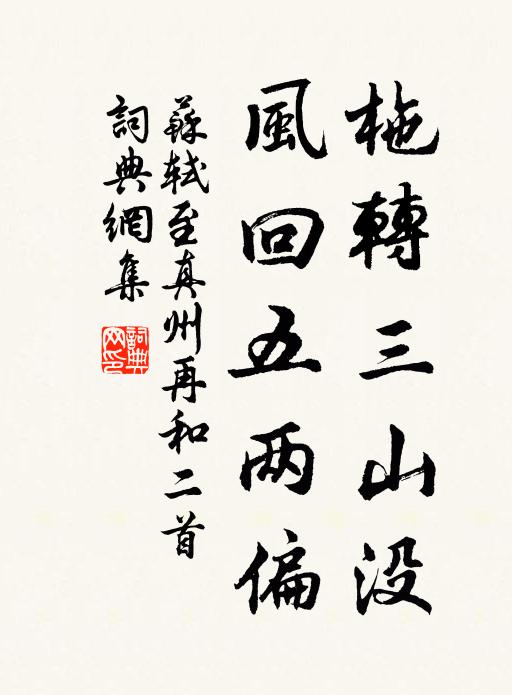 柂轉三山没
風回五两偏
蘇軾至真州再和二首
詞典網集
詞典网印